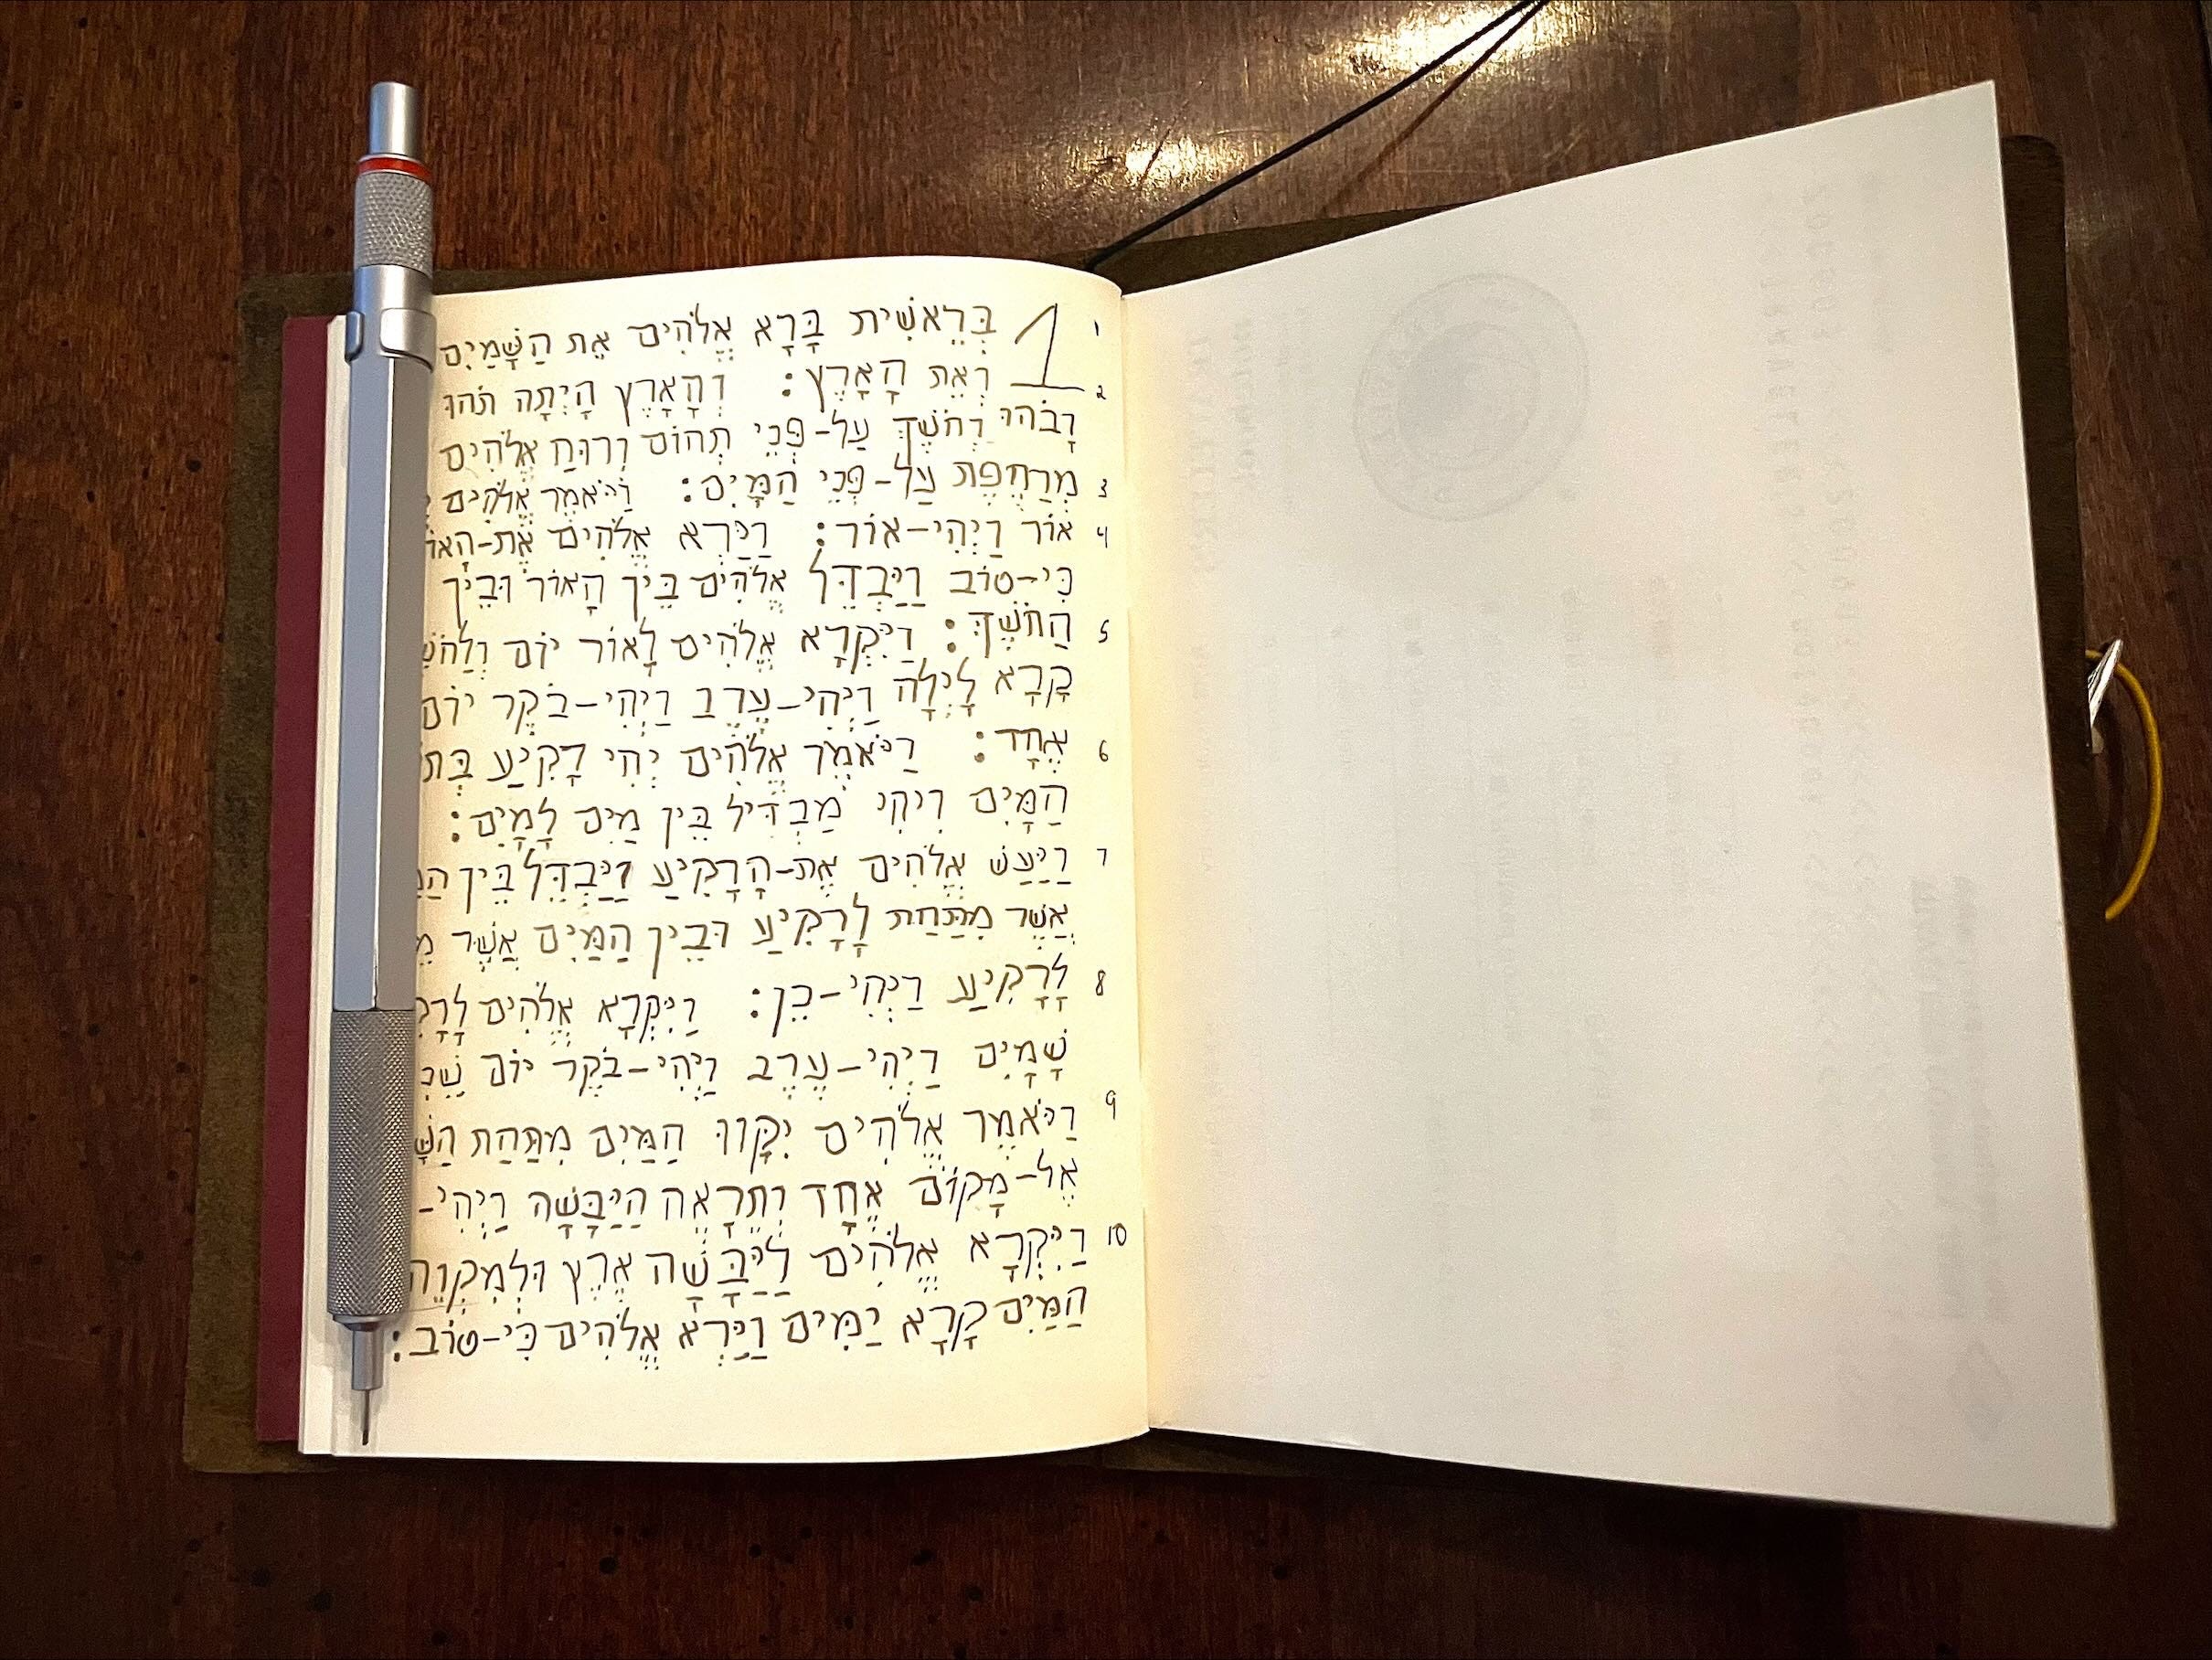 1 1 בְּרֵאשִׁית בָּרָא אֱלֹהִים אֵת הַשָּׁמַיִם
וְאֵת הָאָרֶץ: 2 וְהָאָרֶץ הָיְתָה תֹהוּ
וָבֹהוּ וְחֹשֶׁךְ עַל-פְּנֵי תְהוֹם וְרוּחַ אֱלֹהִים
מְרַחֶפֶת עַל-פְּנֵי הַמָּיִם: 3 וַיֹּאמֶר אֱלֹהִים
אוֹר וַיְהִי-אוֹר: 4 וַיַּרְא אֱלֹהִים אֶת-הָאוֹ
כִּי-טוֹב וַיַּבְדֵּל אֱלֹהִים בֵּין הָאוֹר וּבֵין
הַחֹשֶׁךְ: 5 וַיִּקְרָא אֱלֹהִים לָאוֹר יוֹם וְלַחֹשֶׁ
קָרָא לָיְלָה וַיְהִי-עֶרֶב וַיְהִי-בֹקֶר יוֹם
אֶחָד: 6 וַיֹּאמֶר אֱלֹהִים יְהִי רָקִיעַ בְּת
הַמָּיִם וִיהִי מַבְדִּיל בֵּין מַיִם לָמָיִם:
7 וַיַּעַשׂ אֱלֹהִים אֶת-הָרָקִיעַ וַיַּבְדֵּל בֵּין
אֲשֶׁר מִתַּחַת לָרָקִיעַ וּבֵין הַמַּיִם אֲשֶׁר
לָרָקִיעַ וַיְהִי-כֵן: 8 וַיִּקְרָא אֱלֹהִים לָרָקִ
שָׁמָיִם וַיְהִי-עֶרֶב וַיְהִי-בֹקֶר יוֹם
9 וַיֹּאמֶר אֱלֹהִים יִקָּווּ הַמַּיִם מִתַּחַת הַשָּׁ
אֶל-מָקוֹם אֶחָד וְתֵרָאֶה הַיַּבָּשָׁה וַיְהִי-
10 וַיִּקְרָא אֱלֹהִים לַיַּבָּשָׁה אֶרֶץ וּלְמִקְוֵה
הַמַּיִם קָרָא יַמִּים וַיַּרְא אֱלֹהִים כִּי-טוֹב: